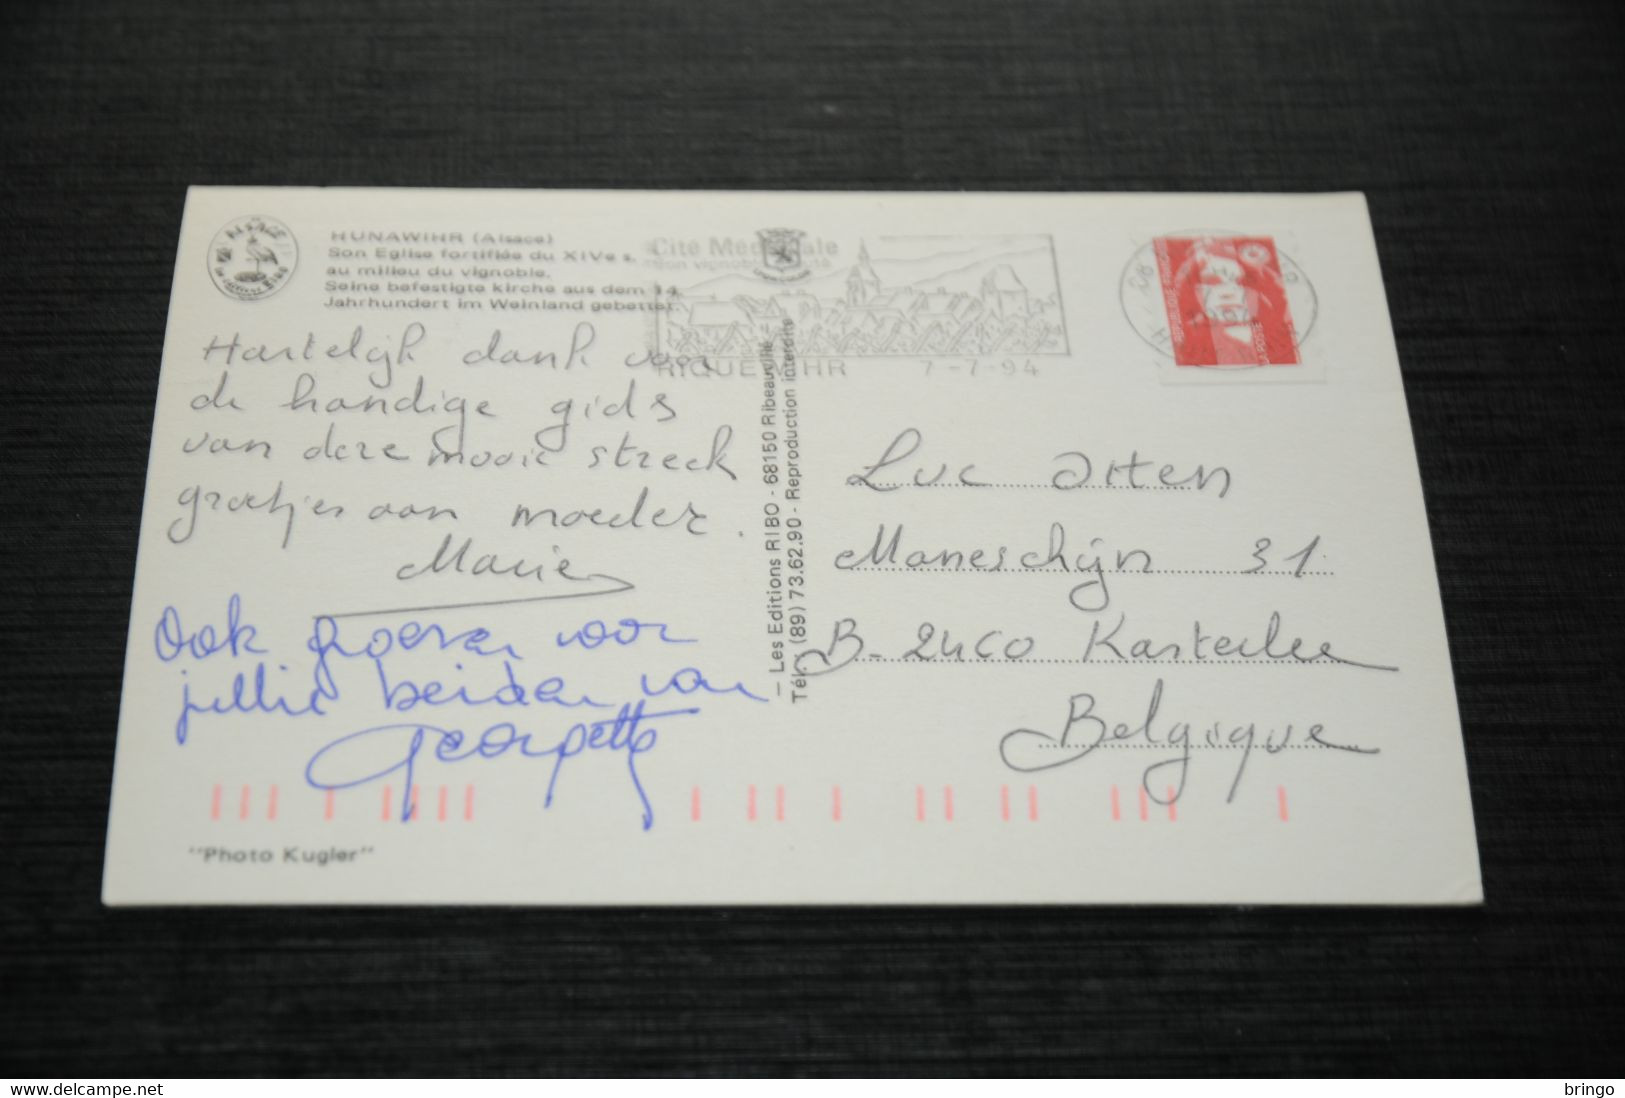 HUNAWIHR (Alsace)
Son Eglise fortifiée du XIVe s.
au milieu du vignoble.
Seine befestigte kirche aus dem 14.
Jahrhundert im Weinland gebettet.
ALSACE
Cité Médiévale
Son vignoble
RIQUEWIHR 7-7-94
REPUBLIQUE FRANÇAISE
LA POSTE
Hartelijk dank voor
de handige gids
van deze mooie streek
groetjes aan moeder.
Marie
Ook groeten voor
jullie beiden van
Georgette
— Les Editions RIBO - 68150 Ribeauvillé —
Tél. (89) 73.62.90 - Reproduction interdite
Luc Otten
Maneschijn 31
B-2460 Kasterlee
Belgique
"Photo Kugler"
bringo